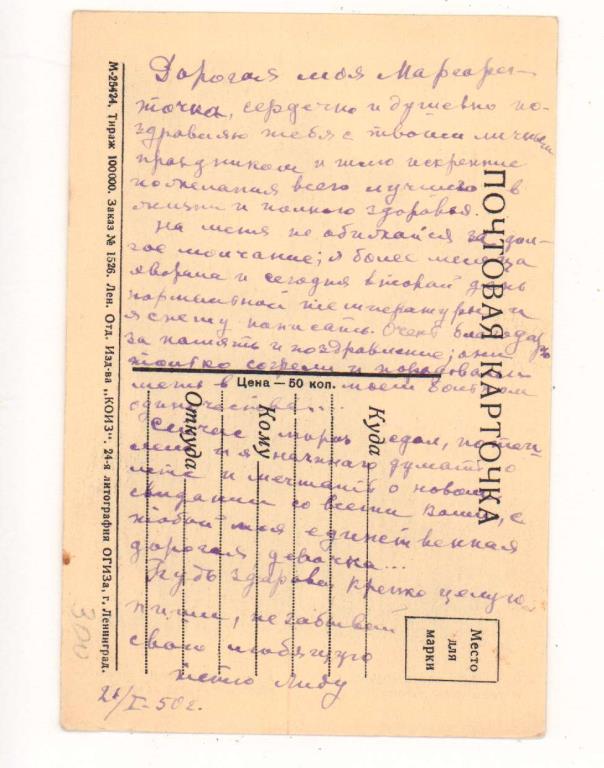 Дорогая моя Маргари-
точка, сердечно и душевно по-
здравляю тебя с твоим личным
праздником и шлю искренние
пожелания всего лучшего в
жизни и полного здоровья.
На меня не обижайся за дол-
гое молчание; я более месяца
хворала и сегодня второй день
нормальной температуры и
я спешу написать. Очень благодарю
за память и поздравление; они
только согрели и порадовали
меня в моем
одиночестве...
Сейчас мороз сдал, потеп-
лело и я начинаю думать о
лете и мечтать о новом
свидании со всеми вами, с
тобой моя единственная
дорогая девочка...
Будь здорова крепко целую
пиши, не забывай
свою любящую
тетю Любу
21/I-50 г.
300
ПОЧТОВАЯ КАРТОЧКА
Цена — 50 коп.
Куда
Кому
Откуда
Место
для
марки
М-25424. Тираж 100000. Заказ № 1526. Лен. Отд. Изд-ва „КОИЗ“. 24-я литография ОГИЗа, г. Ленинград.